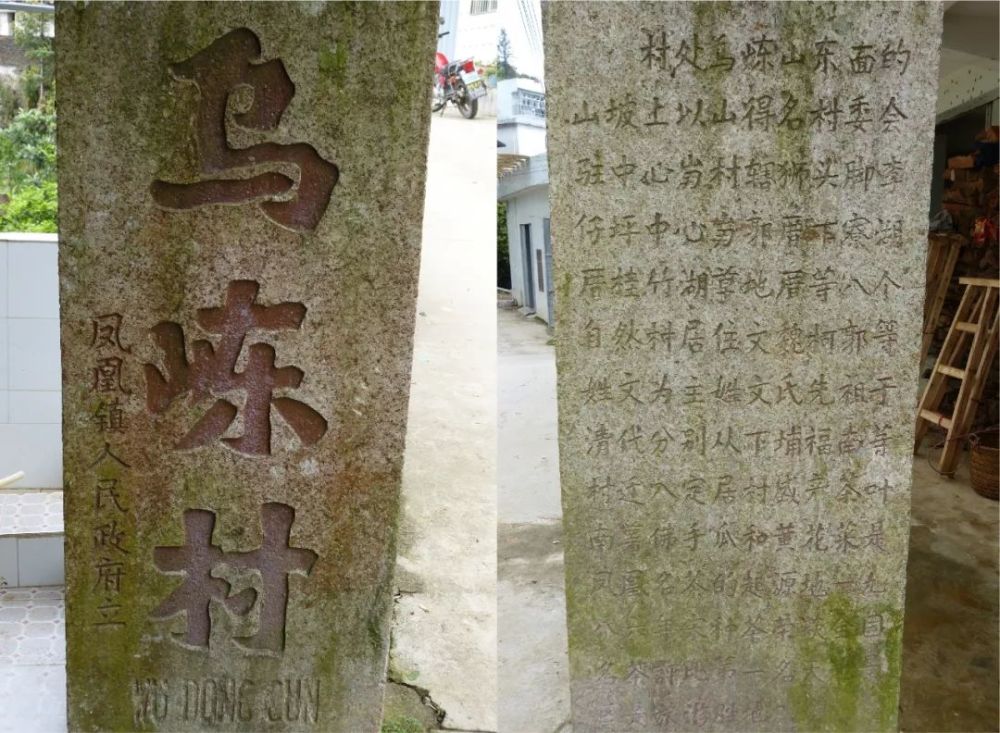 乌岽村
凤凰镇人民政府立
WU DONG CUN
村处乌岽山东面的
山坡上以山得名村委会
驻中心岃村辖狮头脚李
仔坪中心岃郭厝下寮湖
厝桂竹湖草地厝等八个
自然村居住文魏柯郭等
姓文为主姓文氏先祖于
清代分别从下埔福南等
村迁入定居村盛产茶叶
南佛手瓜和黄花菜是
凤凰名茶的起源地一九